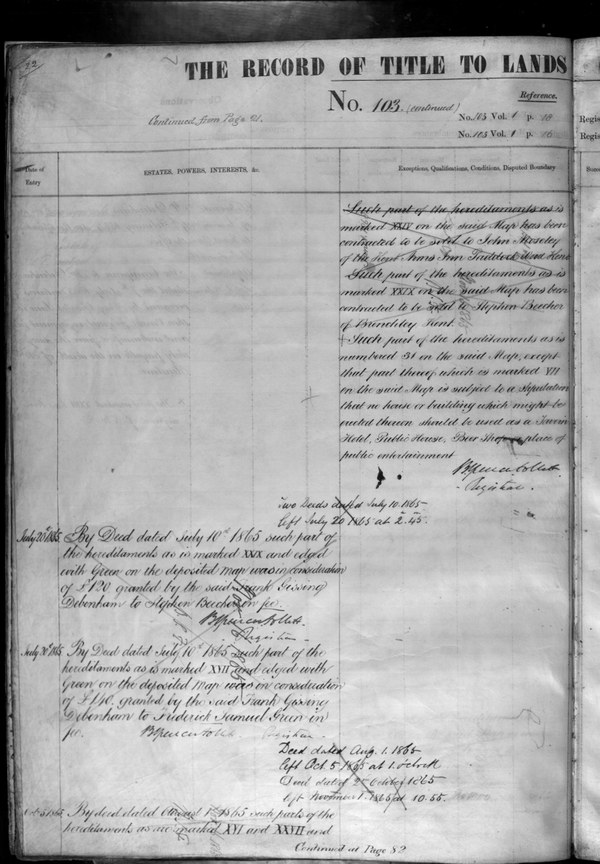 22
THE RECORD OF TITLE TO LANDS
No. 103 (continued)
Reference.
Continued from Page 21.
No. 103 Vol. 1 p. 14
No. 103 Vol. 1 p. 16
Regis
Regis
Date of Entry
ESTATES, POWERS, INTERESTS, &c.
Exceptions, Qualifications, Conditions, Disputed Boundary
Such part of the hereditaments as is
marked XXIV on the said Map has been
contracted to be sold to John Moseley
of the Kent Arms Inn Paddock Wood Kent
Such part of the hereditaments as is
marked XXIX on the said Map has been
contracted to be sold to Stephen Beecher
of Brenchley Kent.
Such part of the hereditaments as is
numbered 31 on the said Map, except
that part thereof which is marked VII
on the said Map is subject to a Stipulation
that no house or building which might be
erected thereon should be used as a Tavern
Hotel, Public House, Beer Shop or place of
public entertainment
BSpencer Follett
Registrar
Two Deeds dated July 10. 1865
left July 20 1865 at 2.45.
July 20th 1865
By Deed dated July 10th 1865 such part of
the hereditaments as is marked XXX and edged
with Green on the deposited Map was in consideration
of £120 granted by the said Frank Gissing
Debenham to Stephen Beecher in fee.
BSpencer Follett
Registrar
July 20th 1865
By Deed dated July 10th 1865 such part of the
hereditaments as is marked XVII and edged with
Green on the deposited Map was in consideration
of £140, granted by the said Frank Gissing
Debenham to Frederick Samuel Green in
fee.
BSpencer Follett
Registrar
Deed dated Aug. 1. 1865
left Oct. 5 1865 at 1. o'clock
Deed dated 2 October 1865
left November 1 1865 at 10.55.
Oct. 5 1865
By deed dated August 1st 1865 such parts of the
hereditaments as are marked XVI and XXVII and
Continued at Page 82